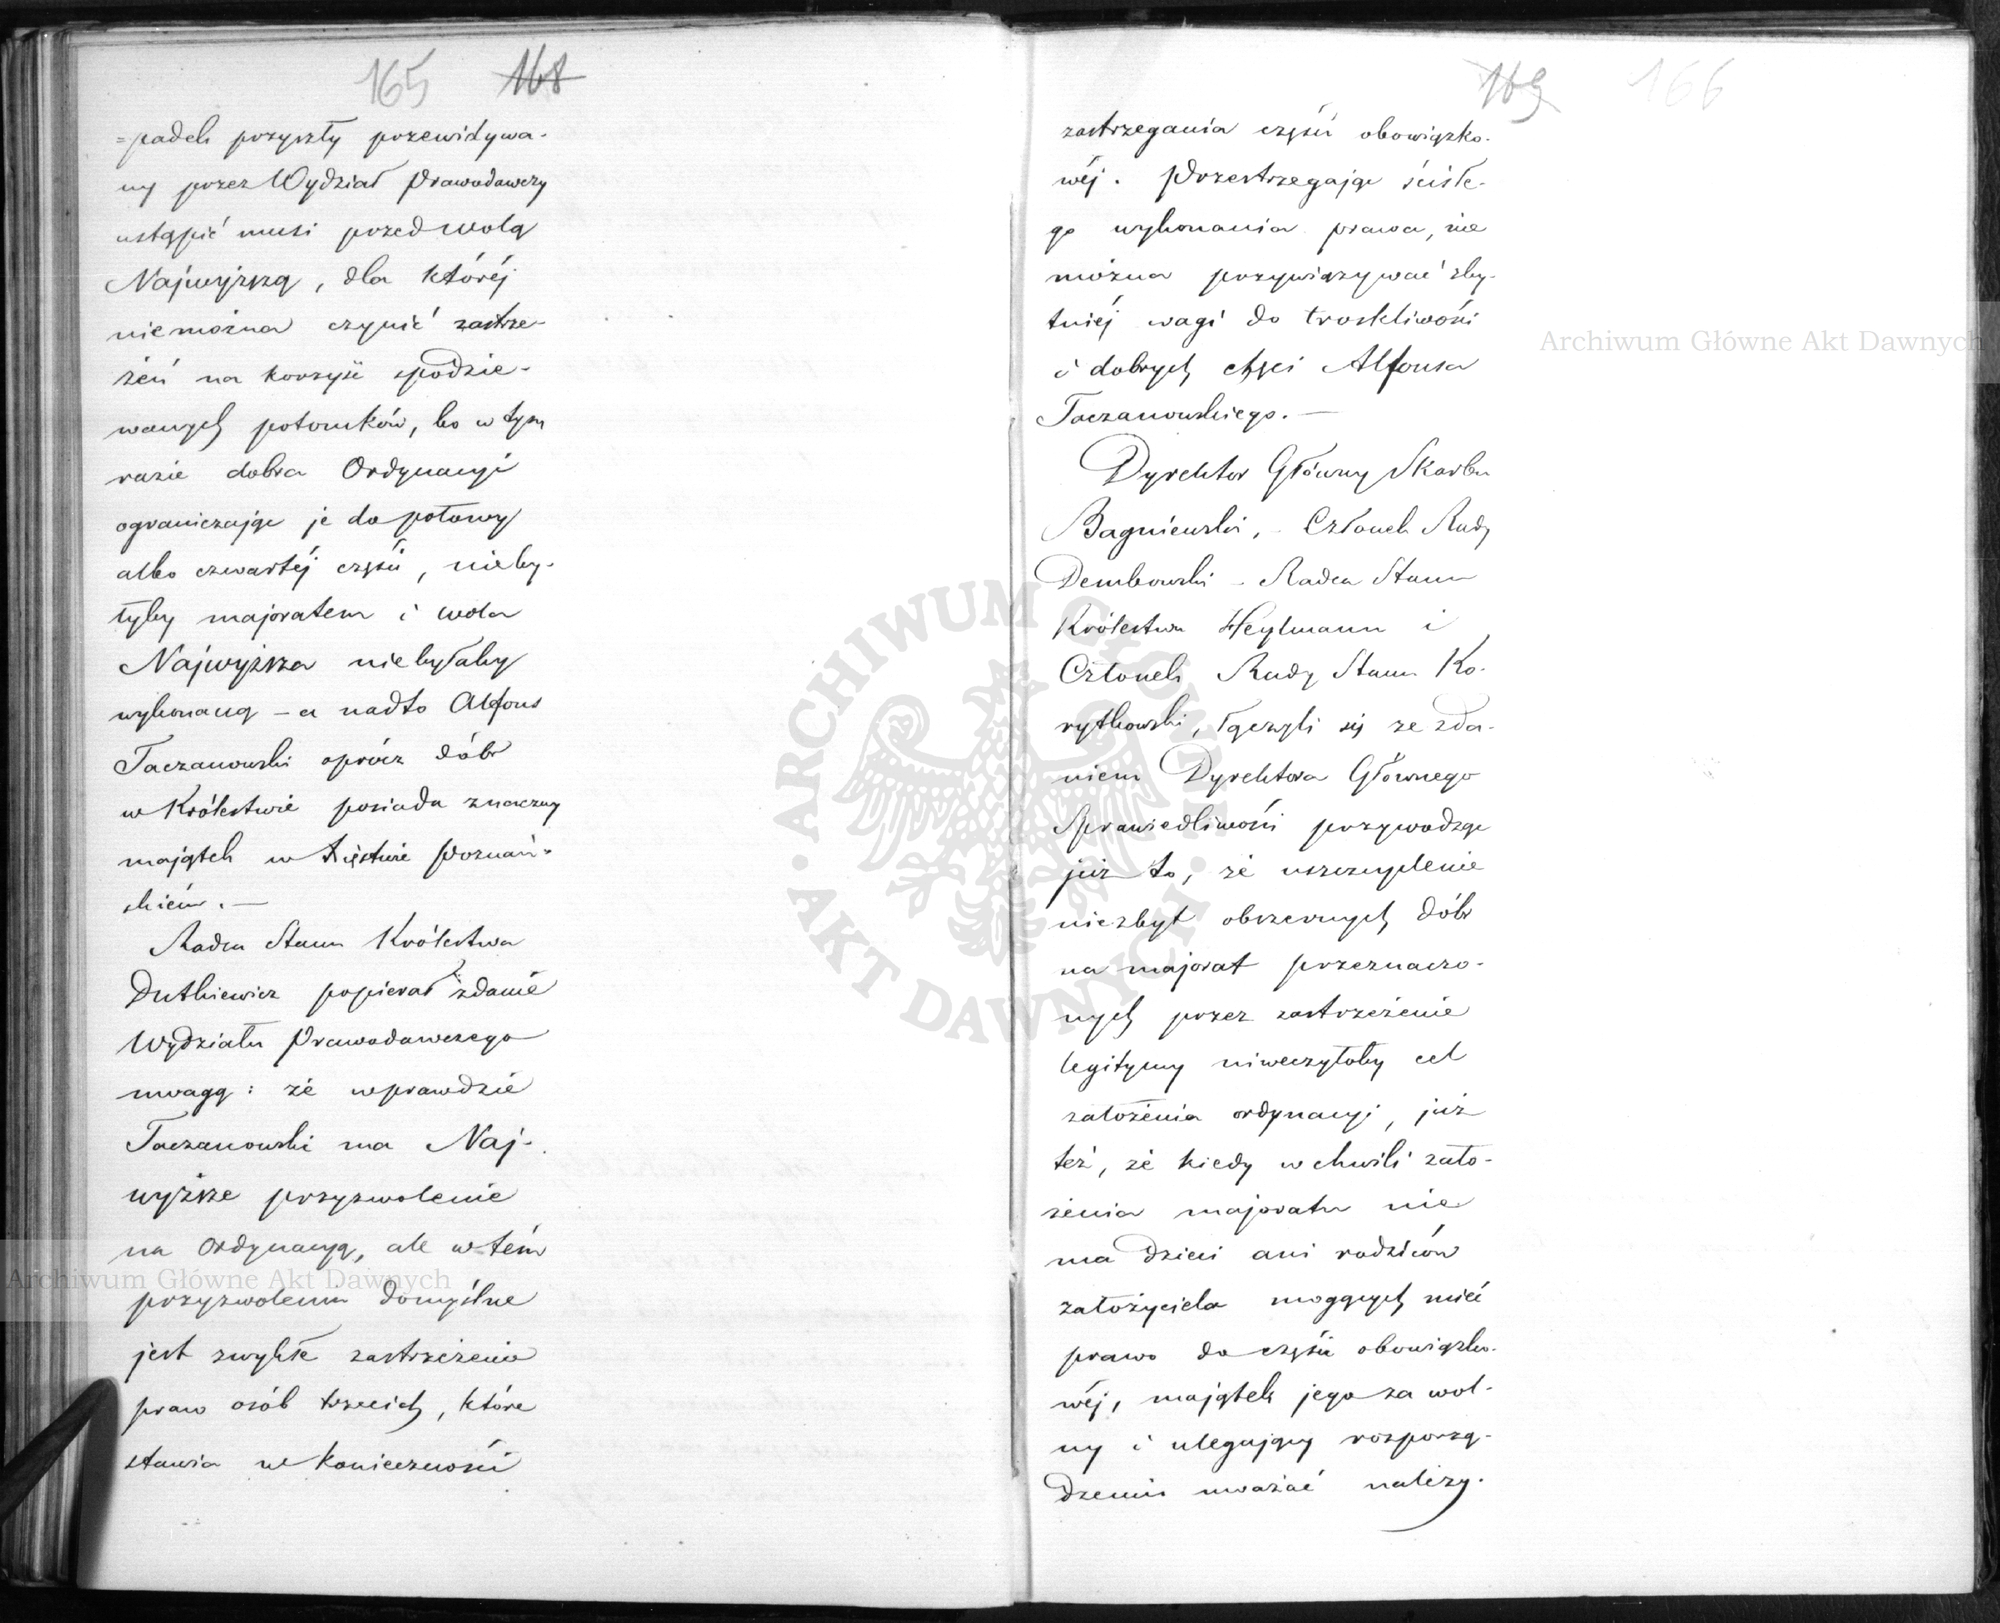 165 168
=padek przyszły przewidywa-
ny przez Wydział Prawodawczy
ustąpić musi przed wolą
Najwyższą, dla któréj
niemożna czynić zastrze-
żeń na korzyść spodzie-
wanych potomków, bo w tym
razie dobra Ordynacyi
ograniczając je do połowy
albo czwartéj części, nieby-
łyby majoratem i wola
Najwyższa niebyłaby
wykonaną – a nadto Alfons
Taczanowski oprócz dóbr
w Królestwie posiada znaczny
majątek w Xięstwie Poznań-
skiém. —
Radca Stanu Królestwa
Dutkiewicz popierał zdanie
Wydziału Prawodawczego
uwagą: że wprawdzie
Taczanowski ma Naj-
wyższe przyzwolenie
na Ordynacyą, ale w tém
przyzwoleniu domyślne
jest zwykłe zastrzeżenie
praw osób trzecich, które
stawia w konieczności
169 166
zastrzegania części obowiązko-
wéj. Przestrzegając ściśłe-
go wykonania prawa, nie
można przywiązywać zby-
tniéj wagi do troskliwości
i dobrych chęci Alfonsa
Taczanowskiego. —
Dyrektor Główny Skarbu
Bagniewski, - Członek Rady
Dembowski - Radca Stanu
Królestwa Heylmann i
Członek Rady Stanu Ko-
rytkowski, łączyli się ze zda-
niem Dyrektora Głównego
Sprawiedliwości przywodząc
już to, że uszczuplenie
niezbyt obszernych dóbr
na majorat przeznaczo-
nych przez zastrzeżenie
legitymy niweczyłoby cel
założenia ordynacyi, już
też, że kiedy w chwili zało-
żenia majoratu nie
ma dzieci ani rodziców
założyciela mogących mieć
prawo do części obowiązko-
wéj, majątek jego za wol-
ny i ulegający rozporzą-
dzeniu uważać należy.
Archiwum Główne Akt Dawnych
Archiwum Główne Akt Dawnych
ARCHIWUM GŁÓWNE · AKT DAWNYCH ·